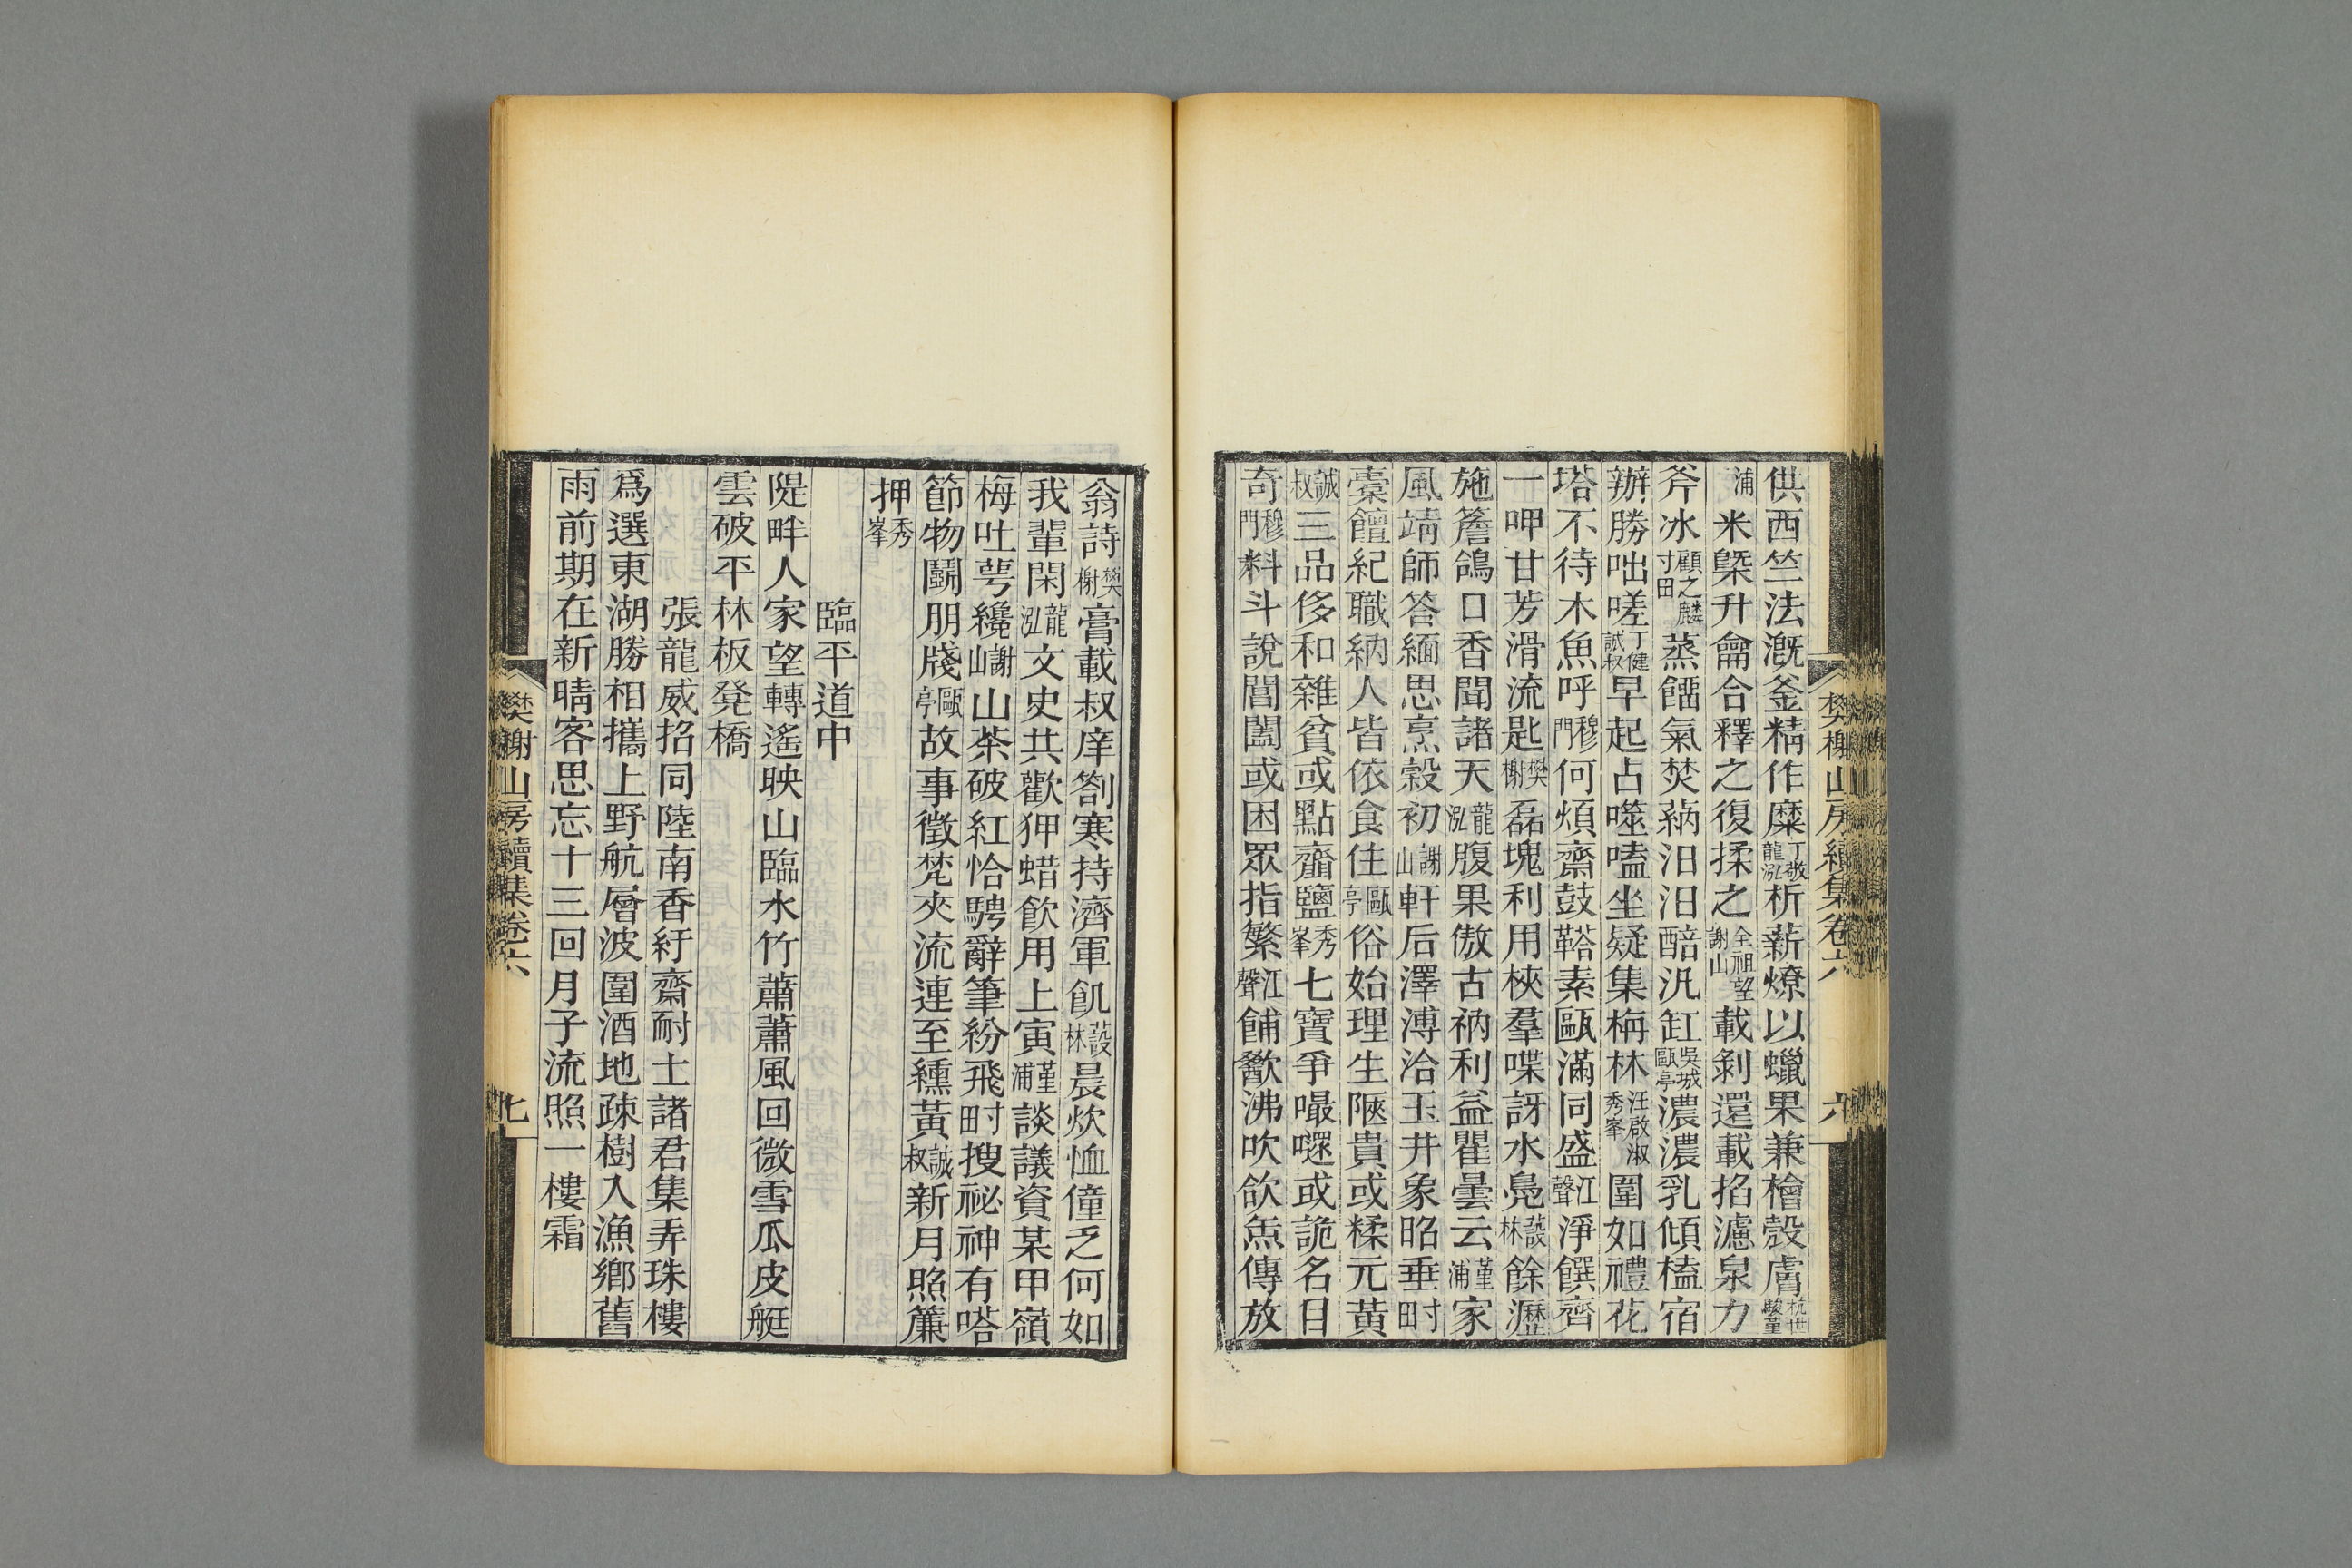 樊榭山房續集卷六
六
供西竺法漑釜精作糜丁敬龍泓析薪燎以蠟果兼檜殼膚杭世駿堇
浦米槩升龠合釋之復揉之全祖望謝山載剝還載掐濾泉力
斧冰顧之麟寸田蒸餾氣焚蒳汨汨醅汎缸吳城甌亭濃濃乳傾榼宿
辦勝咄嗟丁健誠叔早起占噬嗑坐疑集栴林汪啟淑秀峯圍如禮花
塔不待木魚呼穆門何煩齋鼓鞳素甌滿同盛江聲淨饌齊
一呷甘芳滑流匙樊榭磊塊利用梜羣喋訝水鳧葭林餘瀝
施簷鴿口香聞諸天龍泓腹果傲古衲利益瞿曇云堇浦家
風靖師答緬思烹穀初謝山軒后澤溥洽玉井象昭垂寸田
橐饘紀職納人皆依食住甌亭俗始理生陋貴或糅元黃
誠叔三品侈和雜貧或點齏鹽秀峯七寶爭嘬嚃或詭名目
奇穆門料斗說閶闔或困眾指繁江聲餔歠沸吹欱焦傳放
翁詩樊榭膏載叔庠劄寒持濟軍飢葭林晨炊恤僮乏何如
我輩閑龍泓文史共歡狎蜡飲用上寅堇浦談議資某甲嶺
梅吐萼纔謝山山茶破紅恰騁辭筆紛飛寸田搜祕神有嗒
節物鬭朋牋甌亭故事徵梵夾流連至纁黃誠叔新月照簾
押秀峯
臨平道中
隄畔人家望轉遙映山臨水竹蕭蕭風回微雪瓜皮艇
雲破平林板凳橋
張龍威招同陸南香紆齋耐士諸君集弄珠樓
爲選東湖勝相攜上野航層波圍酒地疎樹入漁鄉舊
雨前期在新晴客思忘十三回月子流照一樓霜
樊榭山房續集卷六
七